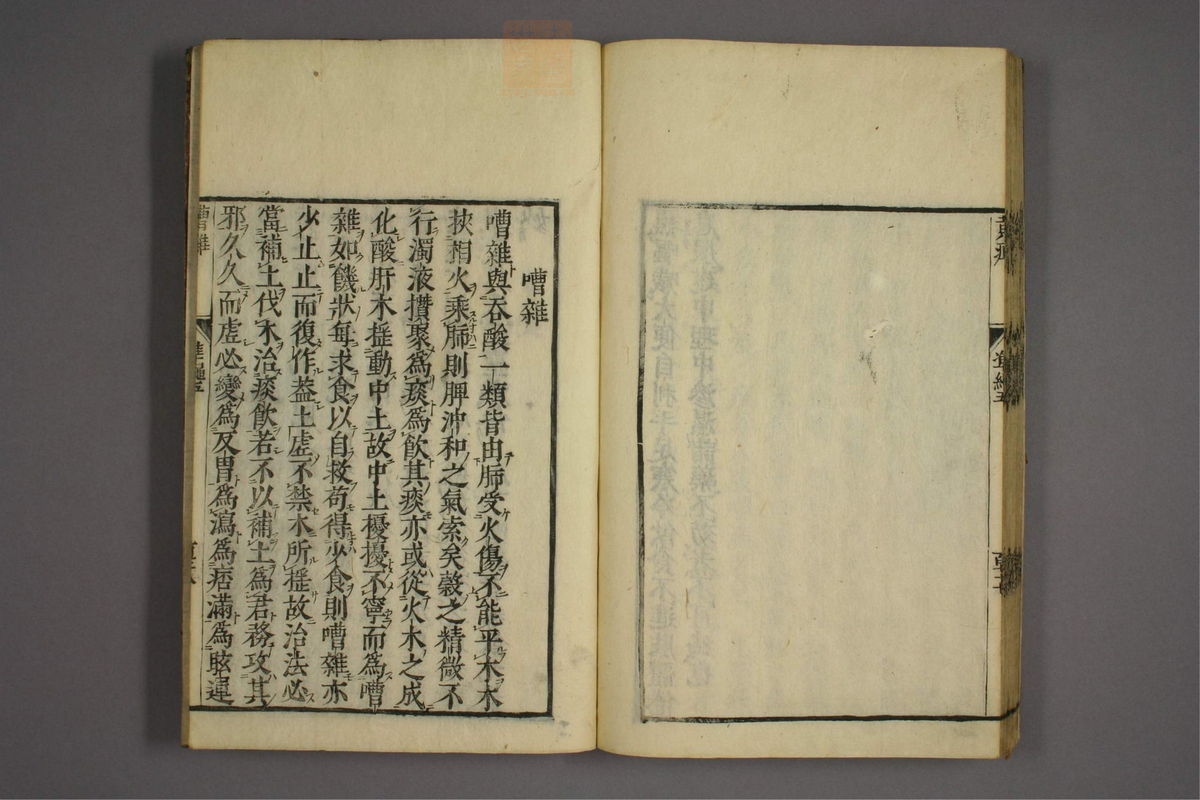 嘈雜
嘈雜與吞酸一類皆由肺受火傷不能平木木
挾相火乘肺則脾沖和之氣索矣穀之精微不
行濁液攅聚為痰為飲其痰亦或從火木之成
化酸肝木揺動中土故中土擾擾不寧而為嘈
雜如饑狀每求食以自救苟得少食則嘈雜亦
少止止而復作葢土虛不禁木所揺故治法必
當補土伐木治痰飲若不以補土為君務攻其
邪久久而虛必變為反胃為瀉為痞滿為眩運
嘈雜